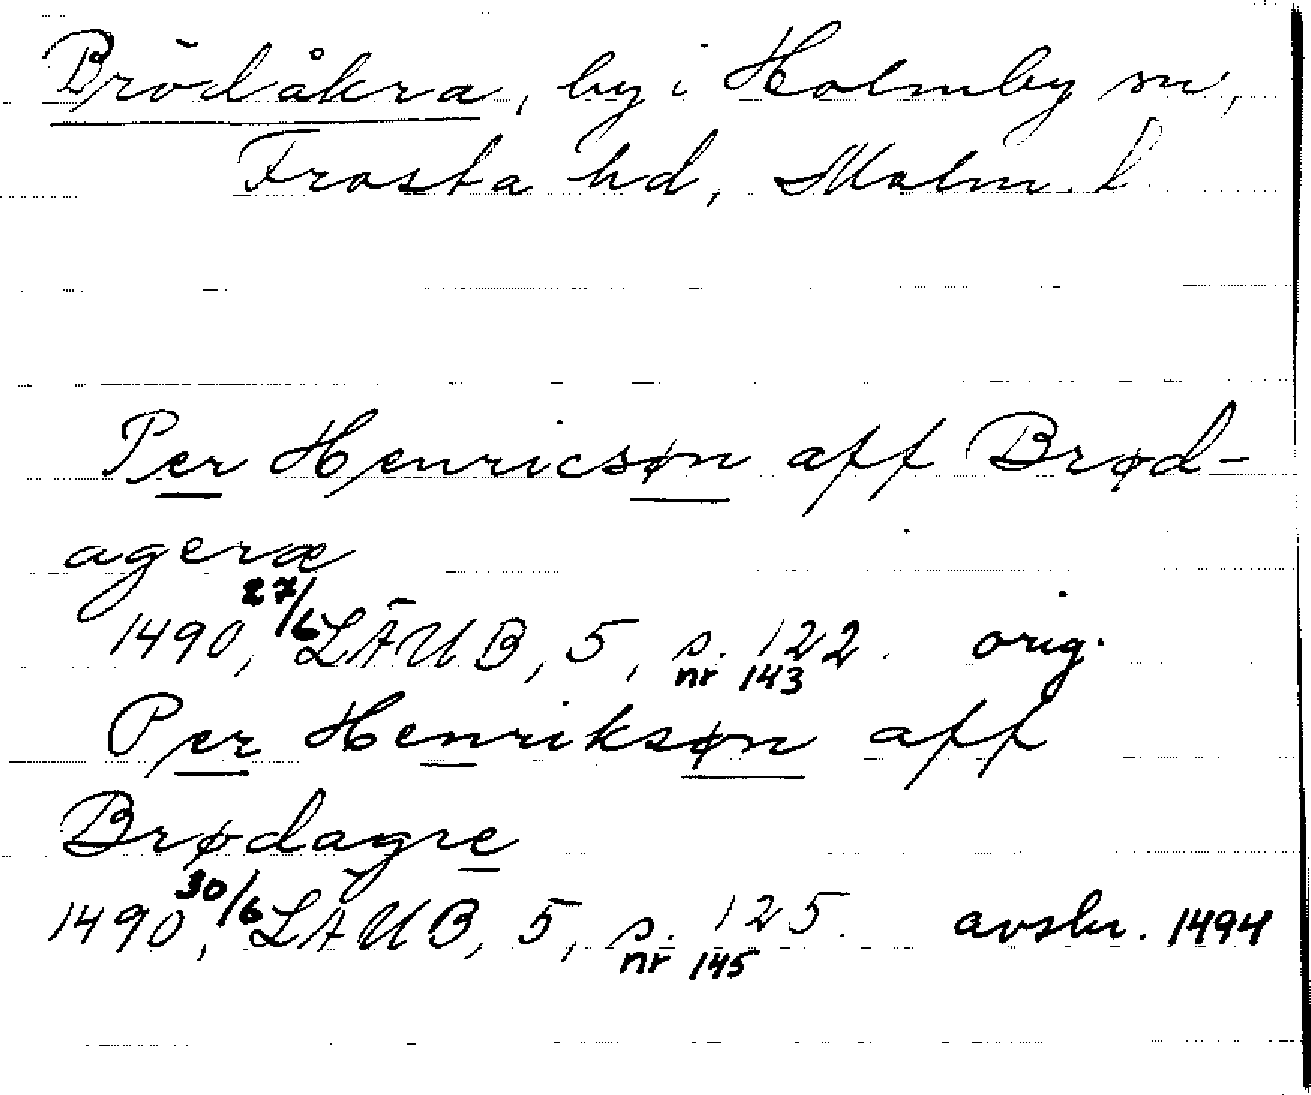 Brödåkra, by i Holmby sn,
Frosta hd, Malm. l
Per Henricsøn aff Brød-
ageræ
1490, 27/6 LÄUB, 5, s. 122. orig.
nr 143
Per Henriksøn aff
Brødagre
1490, 30/6 LÄUB, 5, s. 125. avskr. 1494
nr 145